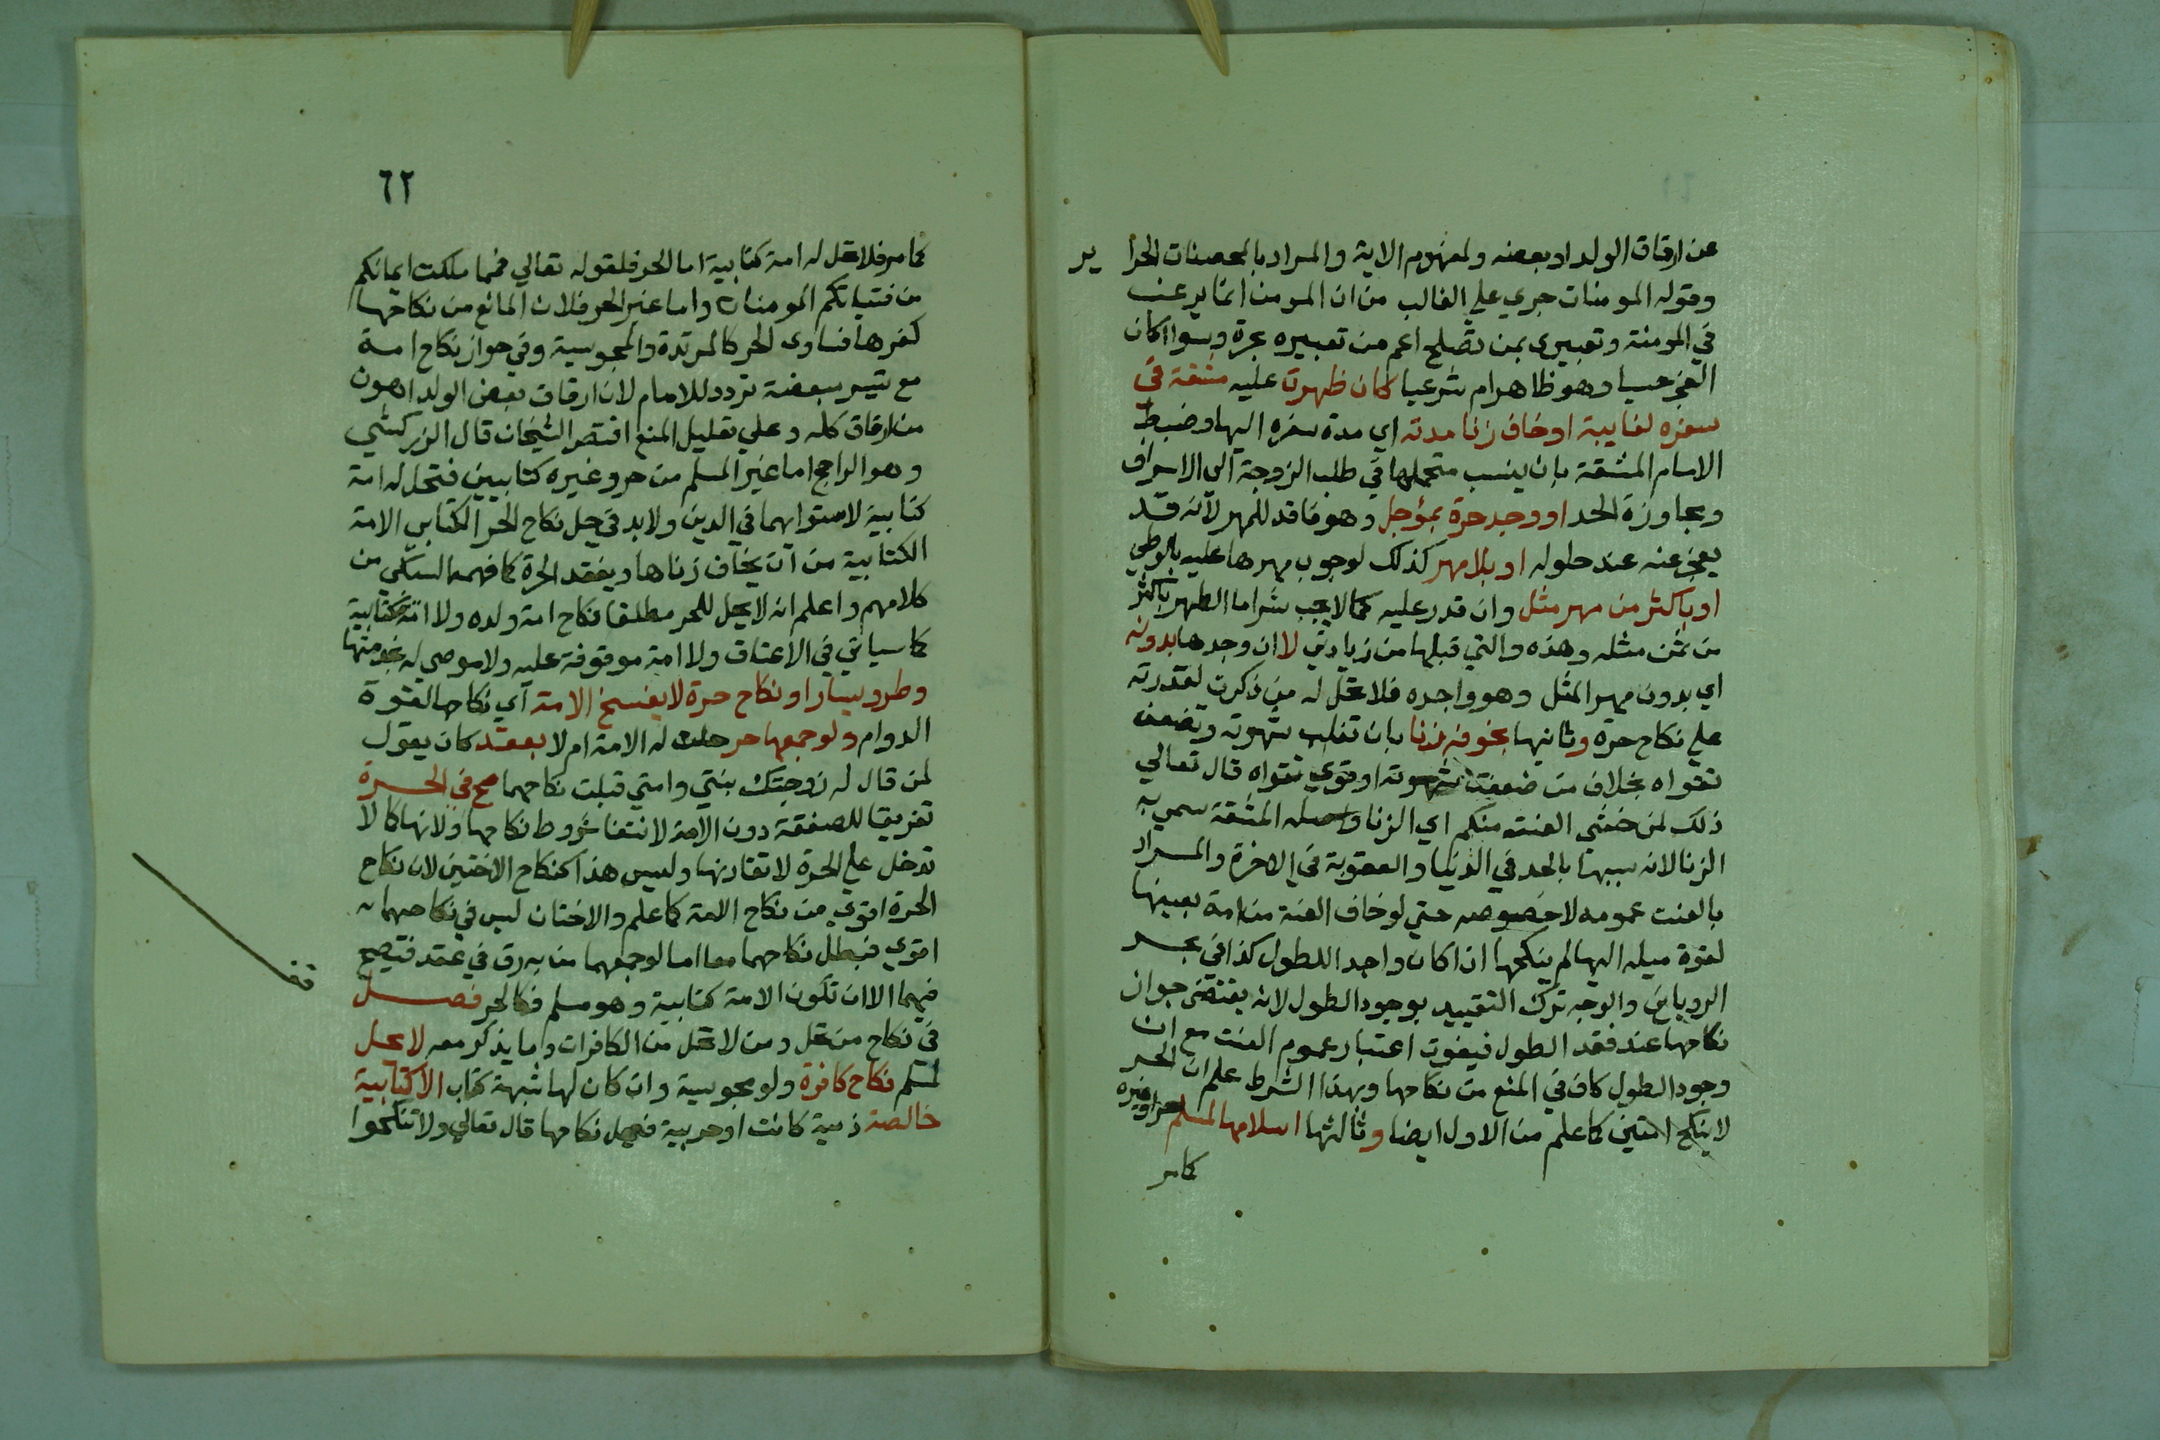 عن ارقاق الولد او بعضه ولمفهوم الاية والمراد بالمحصنات الحرا ير
وقوله المومنات جري علي الغالب من ان المومن انما يرغب
في المومنة وتعبيري بمن تصلح اعم من تعبيره بحرة وسوا اكان
العجز حسيا وهو ظاهر ام شرعيا كان ظهرت عليه مشقة في
سفره لغايبة او خاف زنا مدته اي مدة سفره اليها وضبط
الامام المشقة بان ينسب متحملها في طلب الزوجة الي الاسراف
ومجاوزة الحد او وجد حرة بمؤجل وهو فاقد للمهر لانه قد
يعجز عنه عند حلوله او بلا مهر كذلك لوجوب مهرها عليه بالوطي
او باكثر من مهر مثل وان قدر عليه كما لا يجب شرا ما الطهر باكثر
من ثمن مثله وهذه والتي قبلها من زيادتي لا ان وجدها بدونه
اي بدون مهر المثل وهو واجده فلا تحل له من ذكرت لقدرته
علي نكاح حرة وثانيها بخوفه زنا بان تغلب شهوته وتضعف
تقواه بخلاف من ضعفت شهوته او قوي تقواه قال تعالي
ذلك لمن خشي العنت منكم اي الزنا واصله المشقة سمي به
الزنا لانه سببها بالحد في الدنيا والعقوبة في الاخرة والمراد
بالعنت عمومه لا خصوصه حتي لو خاف العنة من امة بعينها
لقوة ميله اليها لم ينكحها ان اكان واجد اللطول كذا في بحر
الروياني والوجه ترك التقييد بوجود الطول لانه يقتضي جواز
نكاحها عند فقد الطول فيفوت اعتبار عموم العنت مع ان
وجود الطول كاف في المنع من نكاحها وبهذا الشرط علم ان الحر
لا ينكح امتين كما علم من الاول ايضا وثالثها اسلامها لمسلم حر او غيره
كما مر
٦٢
كما مر فلا تحل له امة كتابية اما الحر فلقوله تعالي فمما ملكت ايمانكم
من فتياتكم المومنات واما غير الحر فلان المانع من نكاحها
كفرها فساوي الحر كالمرتدة والمجوسية وفي جواز نكاح امة
مع تيسر مبعضة تردد للامام لان ارقاق بعض الولد اهون
من ارقاق كله وعلي تعليل المنع اقتصر الشيخان قال الزركشي
وهو الراجح اما غير المسلم من حر وغيره كتابيين فتحل له امة
كتابية لاستوايهما في الدين ولا بد في حل نكاح الحر الكتابي الامة
الكتابية من ان يخاف زناها ويفقد الحرة كما فهمه السبكي من
كلامهم واعلم انه لا يحل للحر مطلقا نكاح امة ولده ولا امة مكاتبه
كما سياتي في الاعتاق ولا امة موقوفة عليه ولا موصي له بخدمتها
وطرو يسار او نكاح حرة لا يفسخ الامة اي نكاحها لقوة
الدوام ولو جمعها حر حلت له الامة ام لا بعقد كان يقول
لمن قال له زوجتك بنتي وامتي قبلت نكاحهما صح في الحرة
تفريقا للصفقة دون الامة لانتفا شروط نكاحها ولانها كما لا
تدخل علي الحرة لا تقارنها وليس هذا كنكاح الاختين لان نكاح
الحرة اقوي من نكاح الامة كما علم والاختان ليس في نكاحهما
اقوي فبطل نكاحهما معا اما لو جمعهما من به رق في عقد فيصح
فيهما الا ان تكون الامة كتابية وهو مسلم فكالحر فصل
في نكاح من تحل ومن لا تحل من الكافرات وما يذكر معه لا يحل
لمسلم نكاح كافرة ولو مجوسية وان كان لها شبهة كتاب الا كتابية
خالصة ذمية كانت او حربية فيحل نكاحها قال تعالي ولا تنكحوا
قف